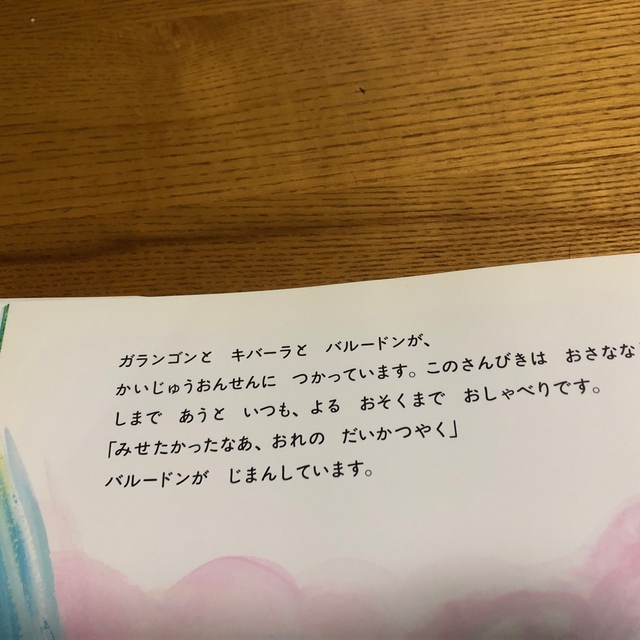 ガランゴンと　キバーラと　バルードンが、
かいじゅうおんせんに　つかっています。このさんびきは　おさなな
しまで　あうと　いつも、よる　おそくまで　おしゃべりです。
「みせたかったなあ、おれの　だいかつやく」
バルードンが　じまんしています。